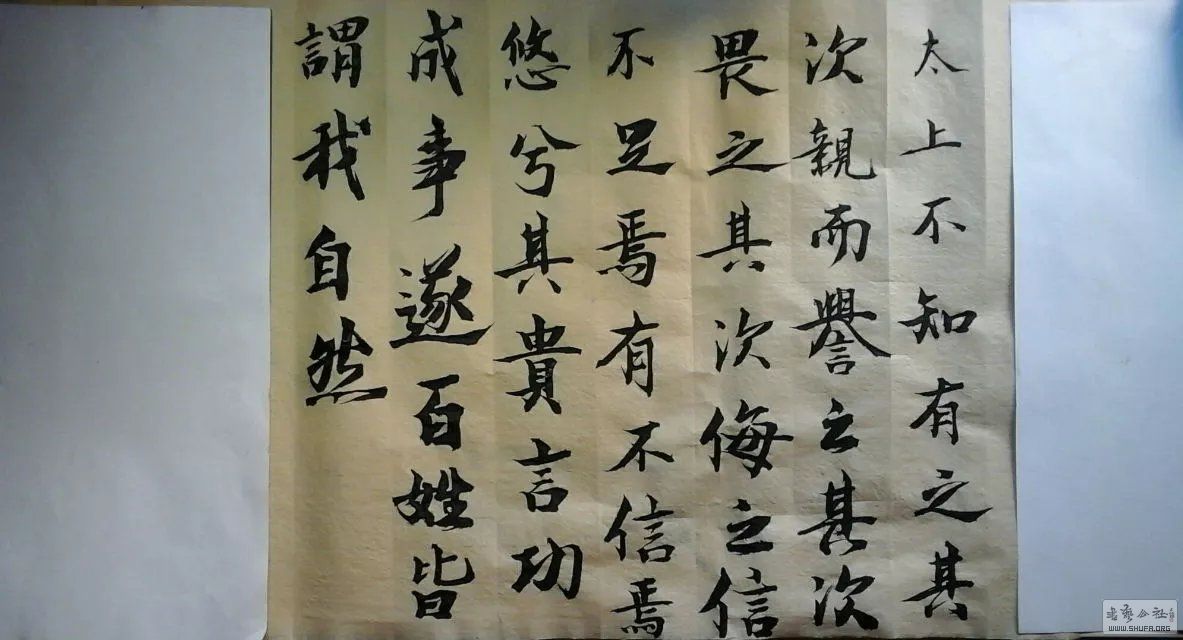 太上不知有之其
次親而譽之其次
畏之其次侮之信
不足焉有不信焉
悠兮其貴言功
成事遂百姓皆
謂我自然
WWW.SHUFA.ORG